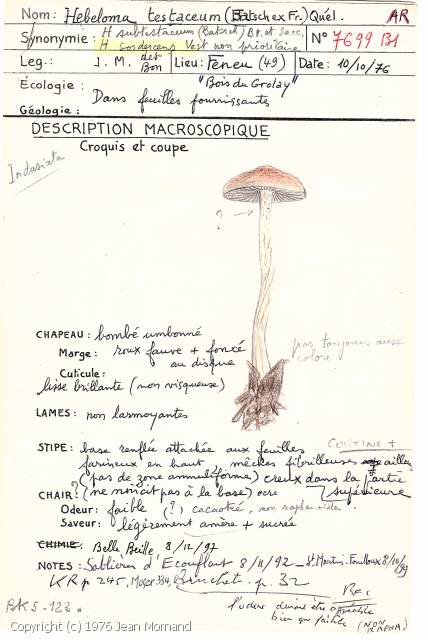 Nom: Hebeloma testaceum (Batsch ex Fr.) Quél. AR
Synonymie: H subtestaceum (Batsch) BP. et Sacc.
H sordescens Vest non prioritaire
N° 7699 B1
Leg.: J. M. det Bon Lieu: Feneu (49) Date: 10/10/76
Écologie: "Bois du Grolay"
Dans feuilles fournissantes
Géologie:
DESCRIPTION MACROSCOPIQUE
Croquis et coupe
Indusiata
?
CHAPEAU: bombé umbonné
Marge: roux fauve + foncé
au disque
pas toujours aussi
coloré
Cuticule:
lisse brillante (non visqueuse)
LAMES: non larmoyantes
STIPE: base renflée attachée aux feuilles
CORTINE +
farineux en haut, mêches fibrilleuses ailleurs
(pas de zone annuliforme) creux dans la partie
supérieure
CHAIR: ? (ne noircit pas à la base) ocre
Odeur: faible (?) cacaotée, non raphanoïde.
Saveur: légèrement amère + sucrée
CHIMIE: Belle Beille 8/12/97
NOTES: Sablières d'Ecouflant 8/11/92 _ St Martin. Fouilloux 8/10/99
KR p 245, Moser 334, Bruchet p. 32
BKS-123.
l'odeur devrait être
bien que faible (NON RAPHA.)
Copyright (c) 1976 Jean Mornand